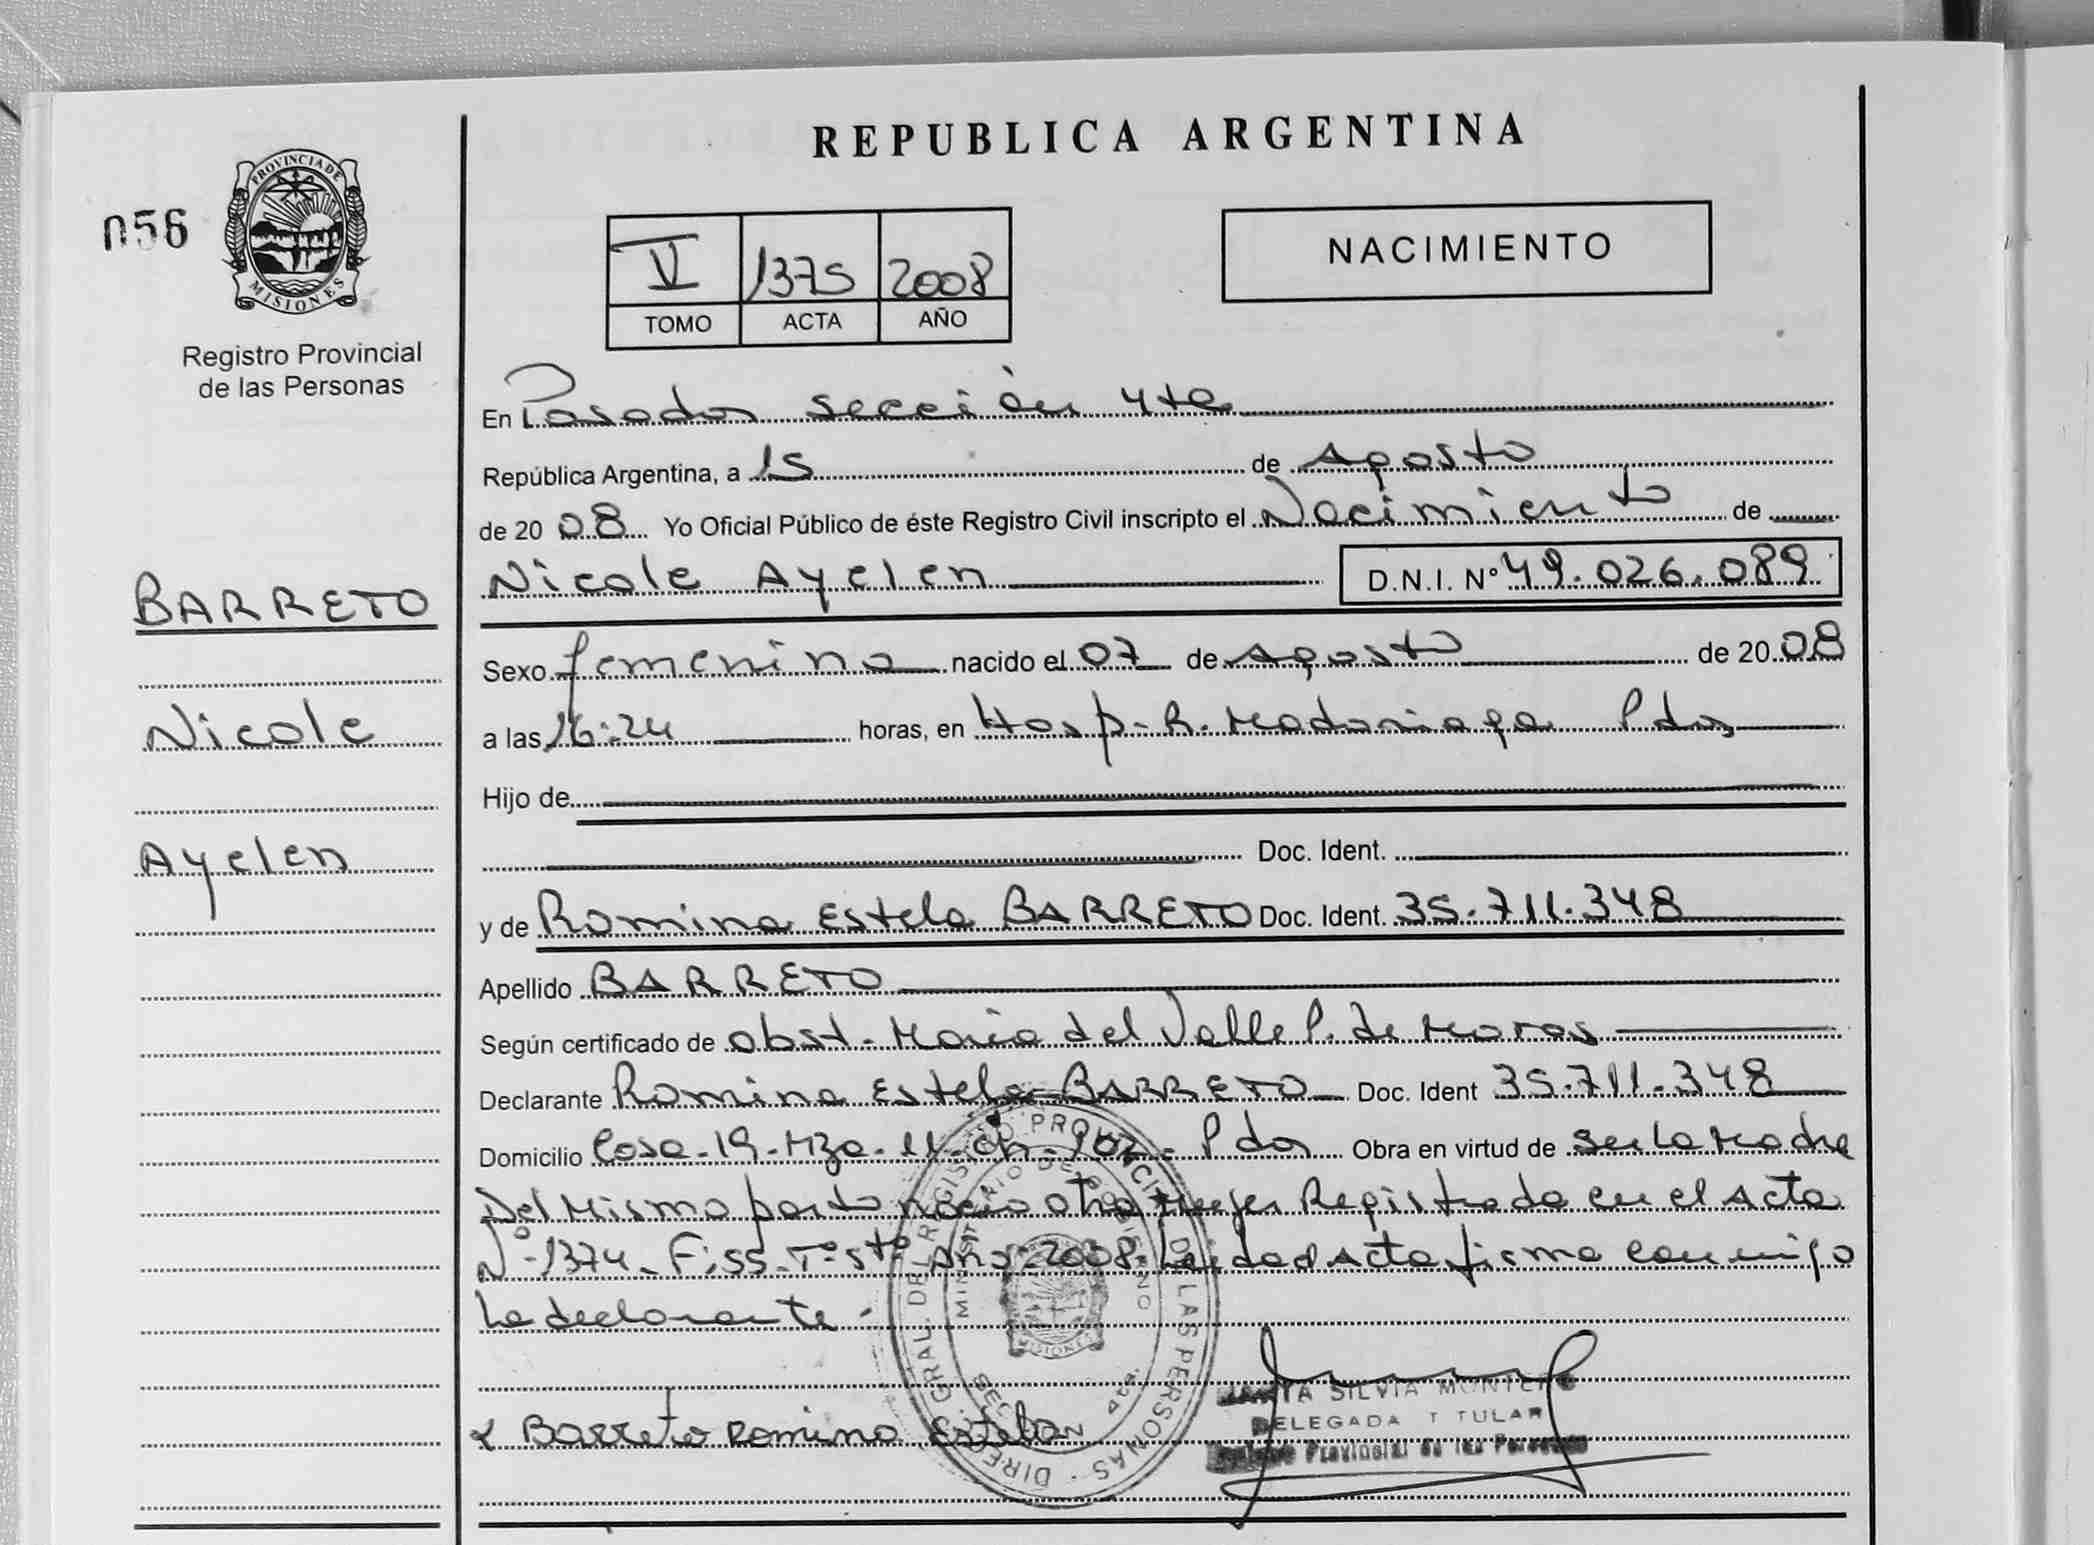 REPUBLICA ARGENTINA
056
PROVINCIA DE
MISIONES
Registro Provincial
de las Personas
V 1375 2008
TOMO ACTA AÑO
NACIMIENTO
En Posadas sección 4ta
República Argentina, a 15 de Agosto
de 2008 Yo Oficial Público de éste Registro Civil inscripto el Nacimiento de
Nicole Ayelen D.N.I. Nº 49.026.089
BARRETO
Nicole
Ayelen
Sexo femenino nacido el 07 de Agosto de 2008
a las 16:24 horas, en Hosp. R. Madariaga Pdas
Hijo de
Doc. Ident.
y de Romina Estela BARRETO Doc. Ident. 35.711.348
Apellido BARRETO
Según certificado de obst. María del Valle P. de Moras
Declarante Romina Estela BARRETO Doc. Ident 35.711.348
Domicilio Casa-19-Mza-11-ch-102- Pdas Obra en virtud de ser la Madre
Del Mismo parto nacio otra mujer Registrada en el Acta
Nº-1374-Fº:55-Tº-5to Año:2008. Leida el Acta firma conmigo
la declarante.
DIREC. GRAL. DEL REGISTRO PROVINCIAL DE LAS PERSONAS
MINISTERIO DE GOBIERNO
MISIONES
x Barreto Romina Estela
SILVIA
DELEGADA TITULAR
Provincial de las Personas